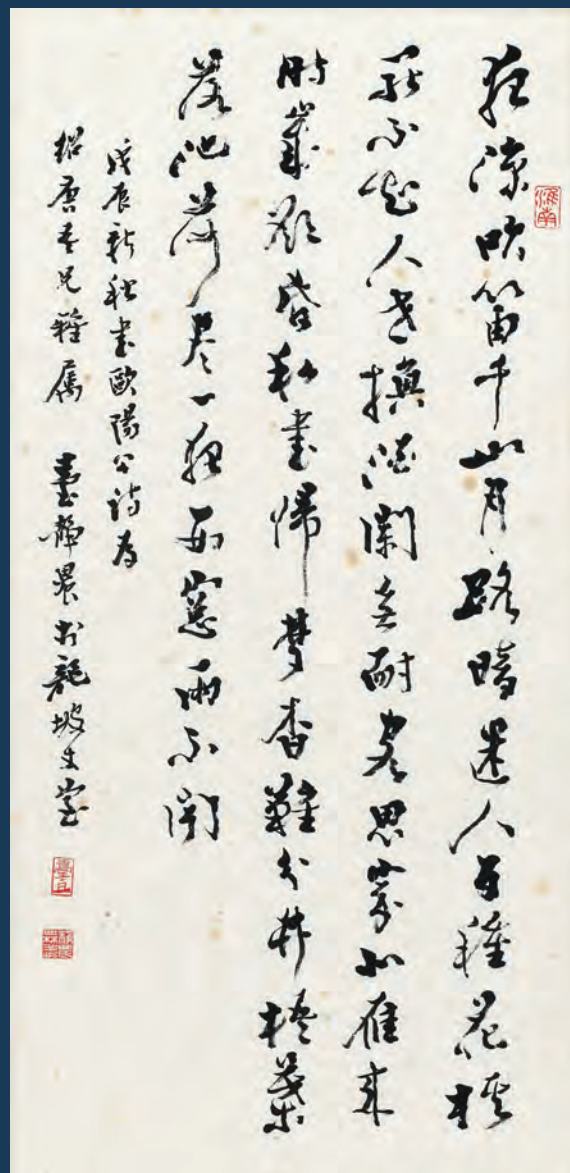 淮南
夜涼吹笛千山月路暗迷人百種花棋
罷不知人世換酒闌無耐客思家北雁來
時歲欲昏私書歸夢杳難分井葉
落池荷盡一夜西窗雨不聞
戊辰新秋書歐陽公詩為
紹唐吾兄雅屬 臺靜農於龍坡丈室